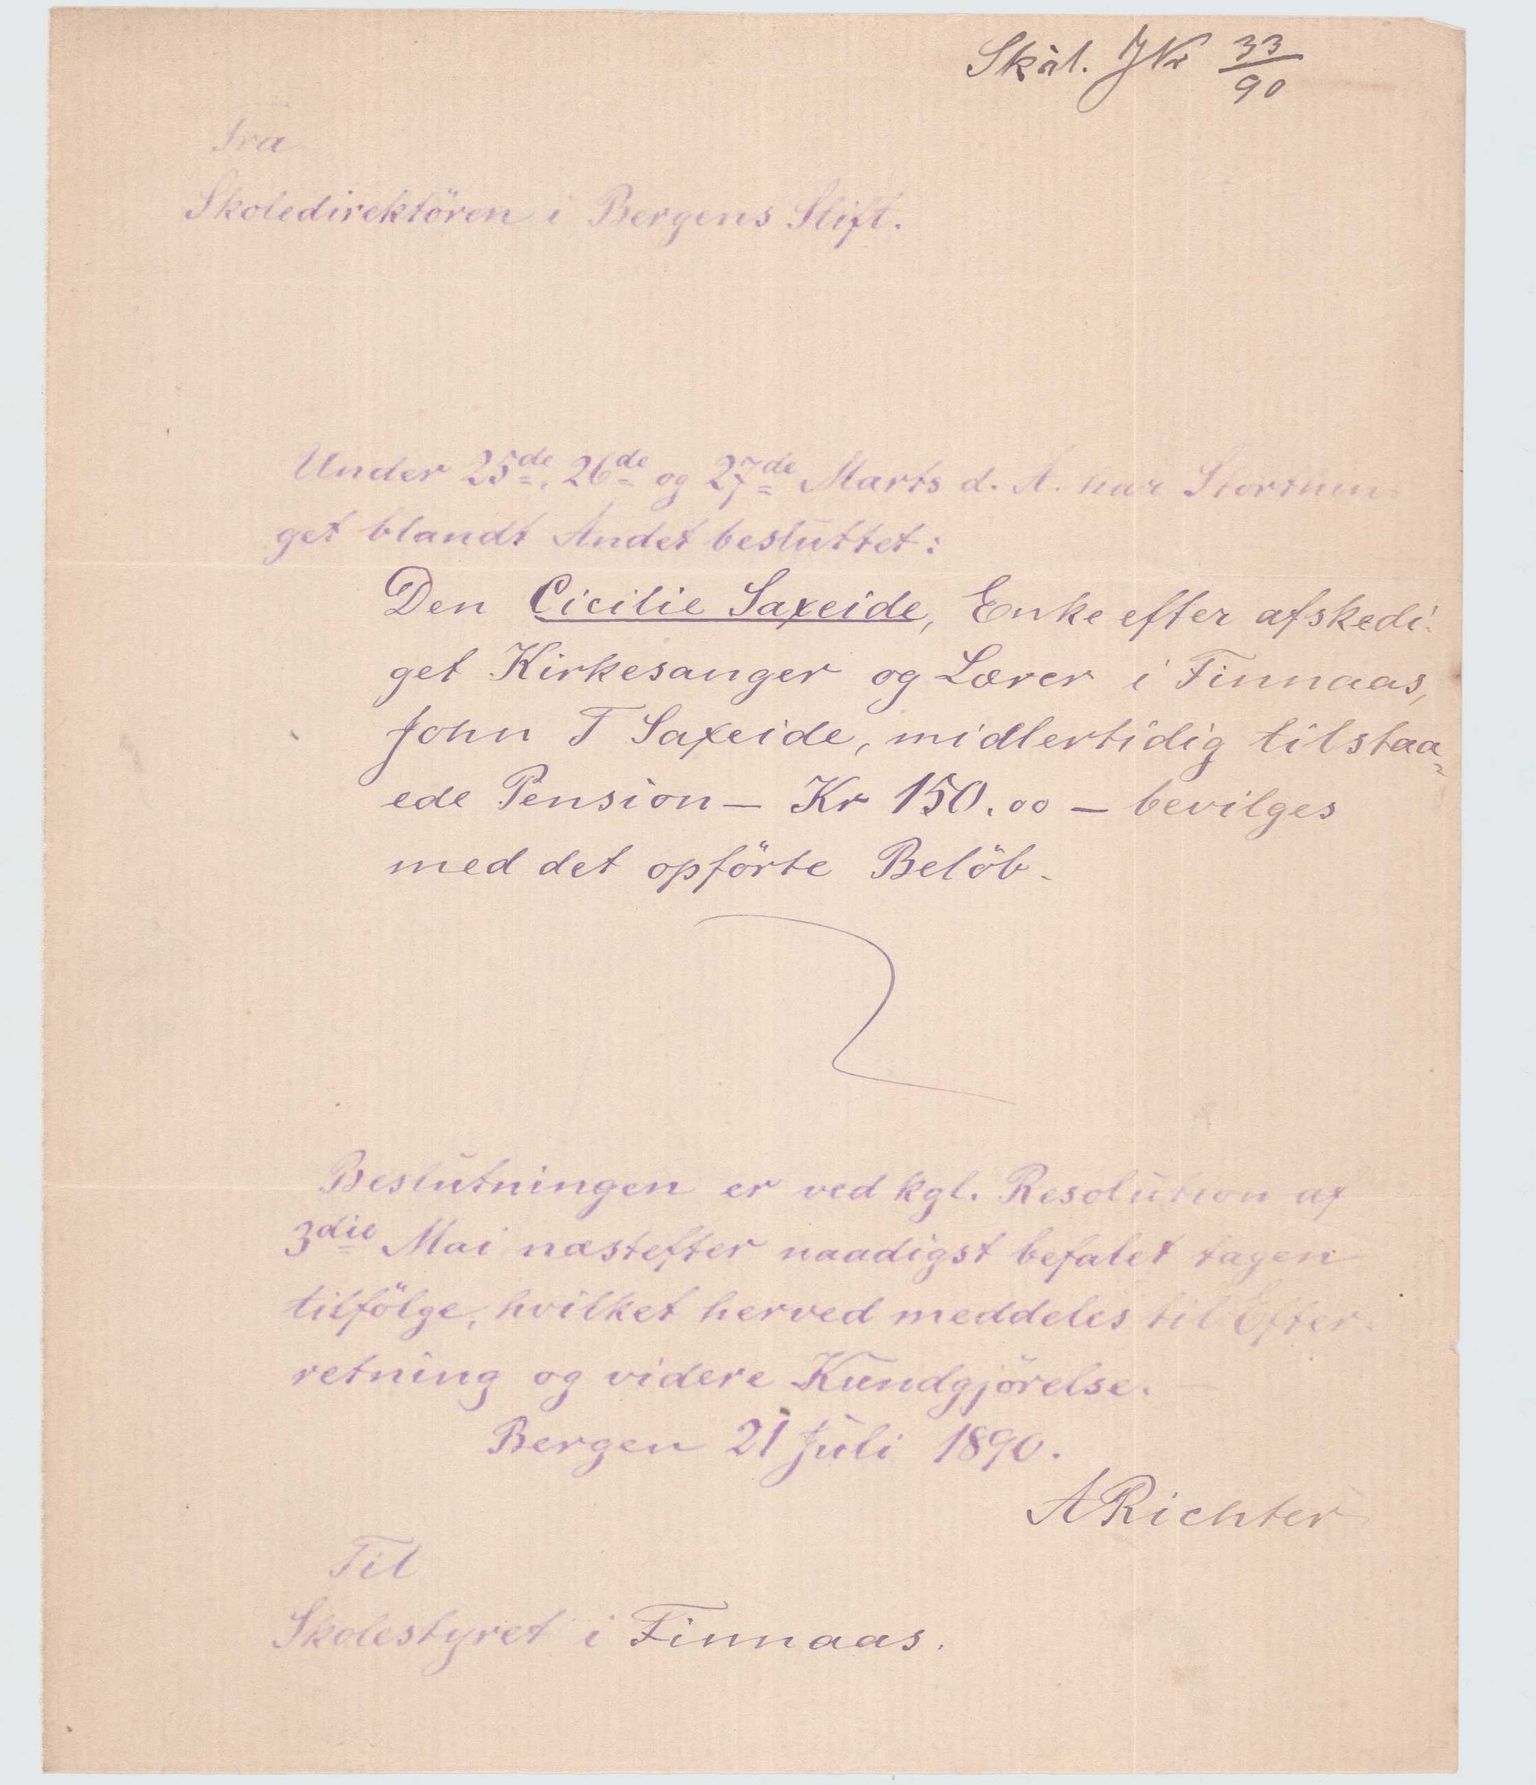 Skàl. JNr 33/90
Fra
Skoledirektören i Bergens Stift.
Under 25de, 26de og 27de Marts d. A. har Stortin-
get blandt Andet besluttet:
Den Cicilie Saxeide, Enke efter afskedi-
get Kirkesanger og Lærer i Finnaas,
John T Saxeide, midlertidig tilstaa-
ede Pension – Kr 150.00 – bevilges
med det opförte Belöb.
Beslutningen er ved kgl. Resolution af
3die Mai næstefter naadigst befalet tagen
tilfölge, hvilket herved meddeles til Efter-
retning og videre Kundgjörelse.
Bergen 21 Juli 1890.
ARichter
Til
Skolestyret i Finnaas.